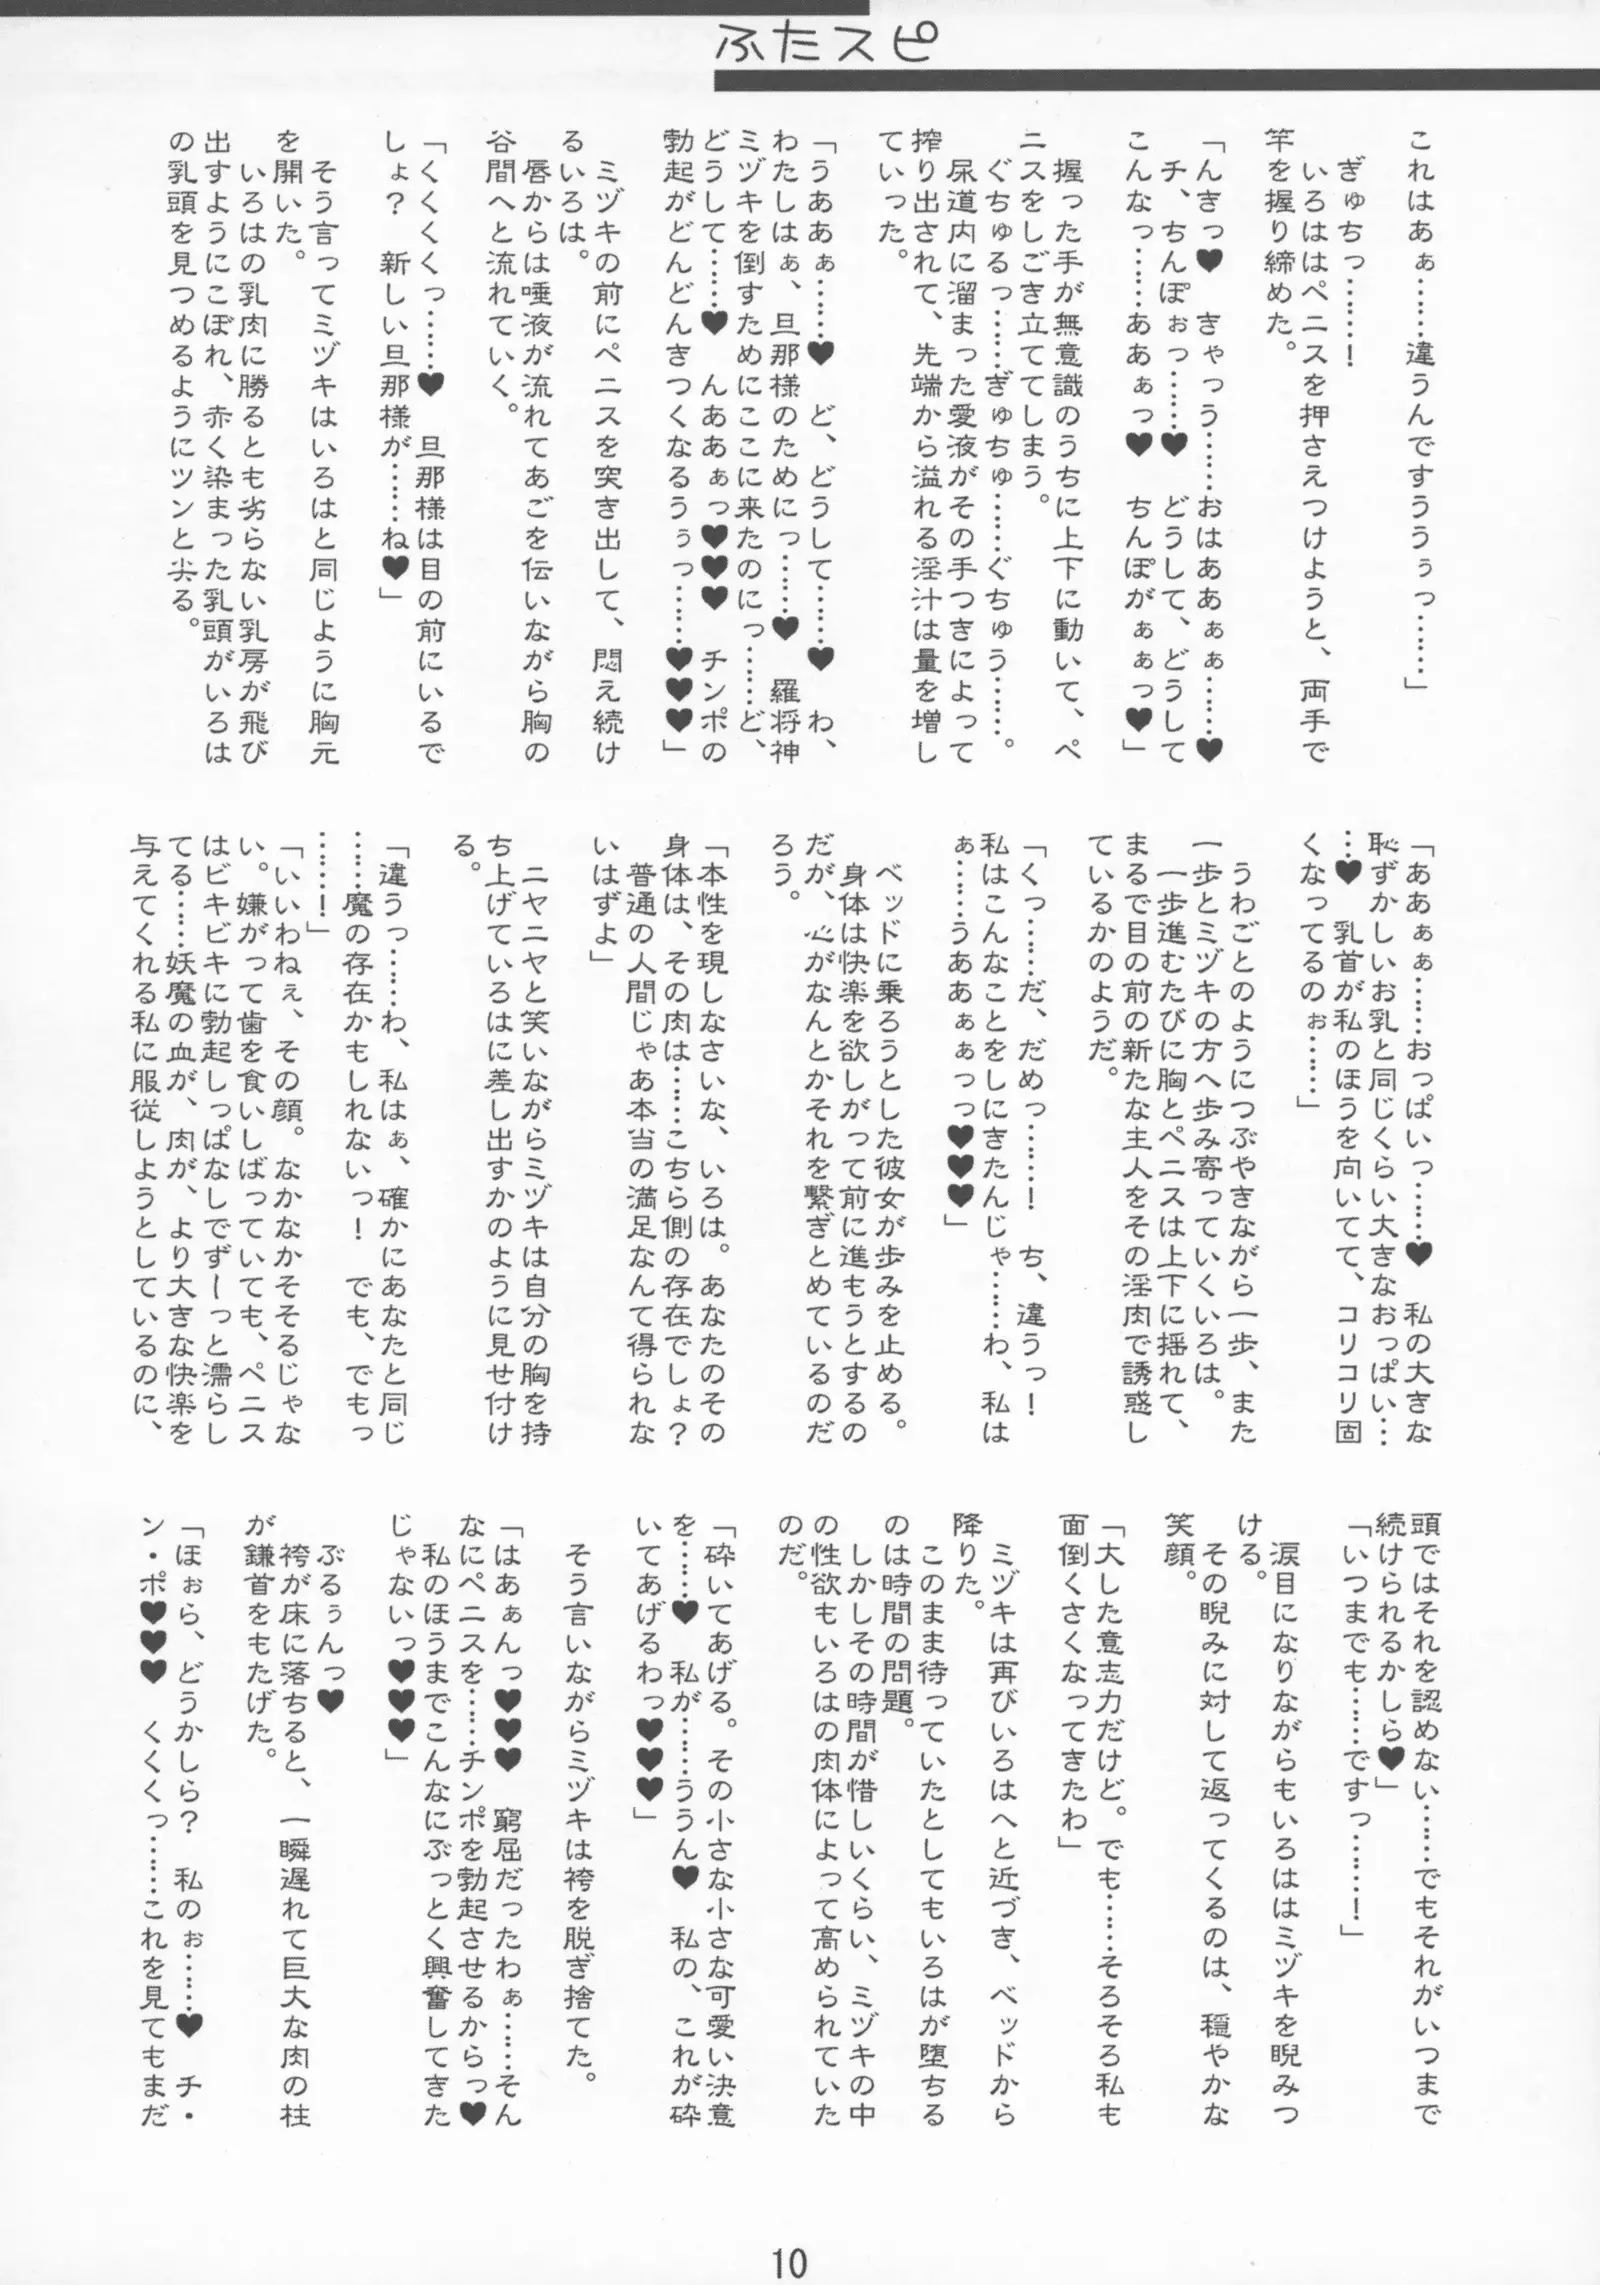 ふたスピ
これはあぁ……違うんですううぅっ……」
　ぎゅちっ……！
　いろははペニスを押さえつけようと、両手で
竿を握り締めた。
「んきっ♥　きゃっう……おはああぁぁ……♥
　チ、ちんぽぉっ……♥　どうして、どうして
こんなっ……ああぁっ♥　ちんぽがぁぁっ♥」
　握った手が無意識のうちに上下に動いて、ペ
ニスをしごき立ててしまう。
　ぐちゅるっ……ぎゅちゅ……ぐちゅう……。
　尿道内に溜まった愛液がその手つきによって
搾り出されて、先端から溢れる淫汁は量を増し
ていった。
「うああぁ……♥　ど、どうして……♥　わ、
わたしはぁ、旦那様のためにっ……♥　羅将神
ミヅキを倒すためにここに来たのにっ……ど、
どうして……♥　んああぁっ♥♥♥　チンポの
勃起がどんどんきつくなるうぅっ……♥♥♥」
　ミヅキの前にペニスを突き出して、悶え続け
るいろは。
　唇からは唾液が流れてあごを伝いながら胸の
谷間へと流れていく。
「くくくくっ……♥　旦那様は目の前にいるで
しょ？　新しい旦那様が……ね♥」
　そう言ってミヅキはいろはと同じように胸元
を開いた。
　いろはの乳肉に勝るとも劣らない乳房が飛び
出すようにこぼれ、赤く染まった乳頭がいろは
の乳頭を見つめるようにツンと尖る。
「ああぁぁ……おっぱいっ……♥　私の大きな
恥ずかしいお乳と同じくらい大きなおっぱい…
…♥　乳首が私のほうを向いてて、コリコリ固
くなってるのぉ……」
　うわごとのようにつぶやきながら一歩、また
一歩とミヅキの方へ歩み寄っていくいろは。
　一歩進むたびに胸とペニスは上下に揺れて、
まるで目の前の新たな主人をその淫肉で誘惑し
ているかのようだ。
「くっ……だ、だめっ……！　ち、違うっ！
私はこんなことをしにきたんじゃ……わ、私は
ぁ……うああぁぁっっ♥♥♥」
　ベッドに乗ろうとした彼女が歩みを止める。
　身体は快楽を欲しがって前に進もうとするの
だが、心がなんとかそれを繋ぎとめているのだ
ろう。
「本性を現しなさいな、いろは。あなたのその
身体は、その肉は……こちら側の存在でしょ？
　普通の人間じゃあ本当の満足なんて得られな
いはずよ」
　ニヤニヤと笑いながらミヅキは自分の胸を持
ち上げていろはに差し出すかのように見せ付け
る。
「違うっ……わ、私はぁ、確かにあなたと同じ
……魔の存在かもしれないっ！　でも、でもっ
……！」
「いいわねぇ、その顔。なかなかそそるじゃな
い。嫌がって歯を食いしばっていても、ペニス
はビキビキに勃起しっぱなしでずーっと濡らし
てる……妖魔の血が、肉が、より大きな快楽を
与えてくれる私に服従しようとしているのに、
頭ではそれを認めない……でもそれがいつまで
続けられるかしら♥」
「いつまでも……ですっ……！」
　涙目になりながらもいろははミヅキを睨みつ
ける。
　その睨みに対して返ってくるのは、穏やかな
笑顔。
「大した意志力だけど。でも……そろそろ私も
面倒くさくなってきたわ」
　ミヅキは再びいろはへと近づき、ベッドから
降りた。
　このまま待っていたとしてもいろはが堕ちる
のは時間の問題。
　しかしその時間が惜しいくらい、ミヅキの中
の性欲もいろはの肉体によって高められていた
のだ。
「砕いてあげる。その小さな小さな可愛い決意
を……♥　私が……ううん♥　私の、これが砕
いてあげるわっ♥♥♥」
　そう言いながらミヅキは袴を脱ぎ捨てた。
「はあぁんっ♥♥♥　窮屈だったわぁ……そん
なにペニスを……チンポを勃起させるからっ♥
　私のほうまでこんなにぶっとく興奮してきた
じゃないっ♥♥♥」
　ぶるぅんっ♥
　袴が床に落ちると、一瞬遅れて巨大な肉の柱
が鎌首をもたげた。
「ほぉら、どうかしら？　私のぉ……♥　チ・
ン・ポ♥♥♥　くくくっ……これを見てもまだ
10